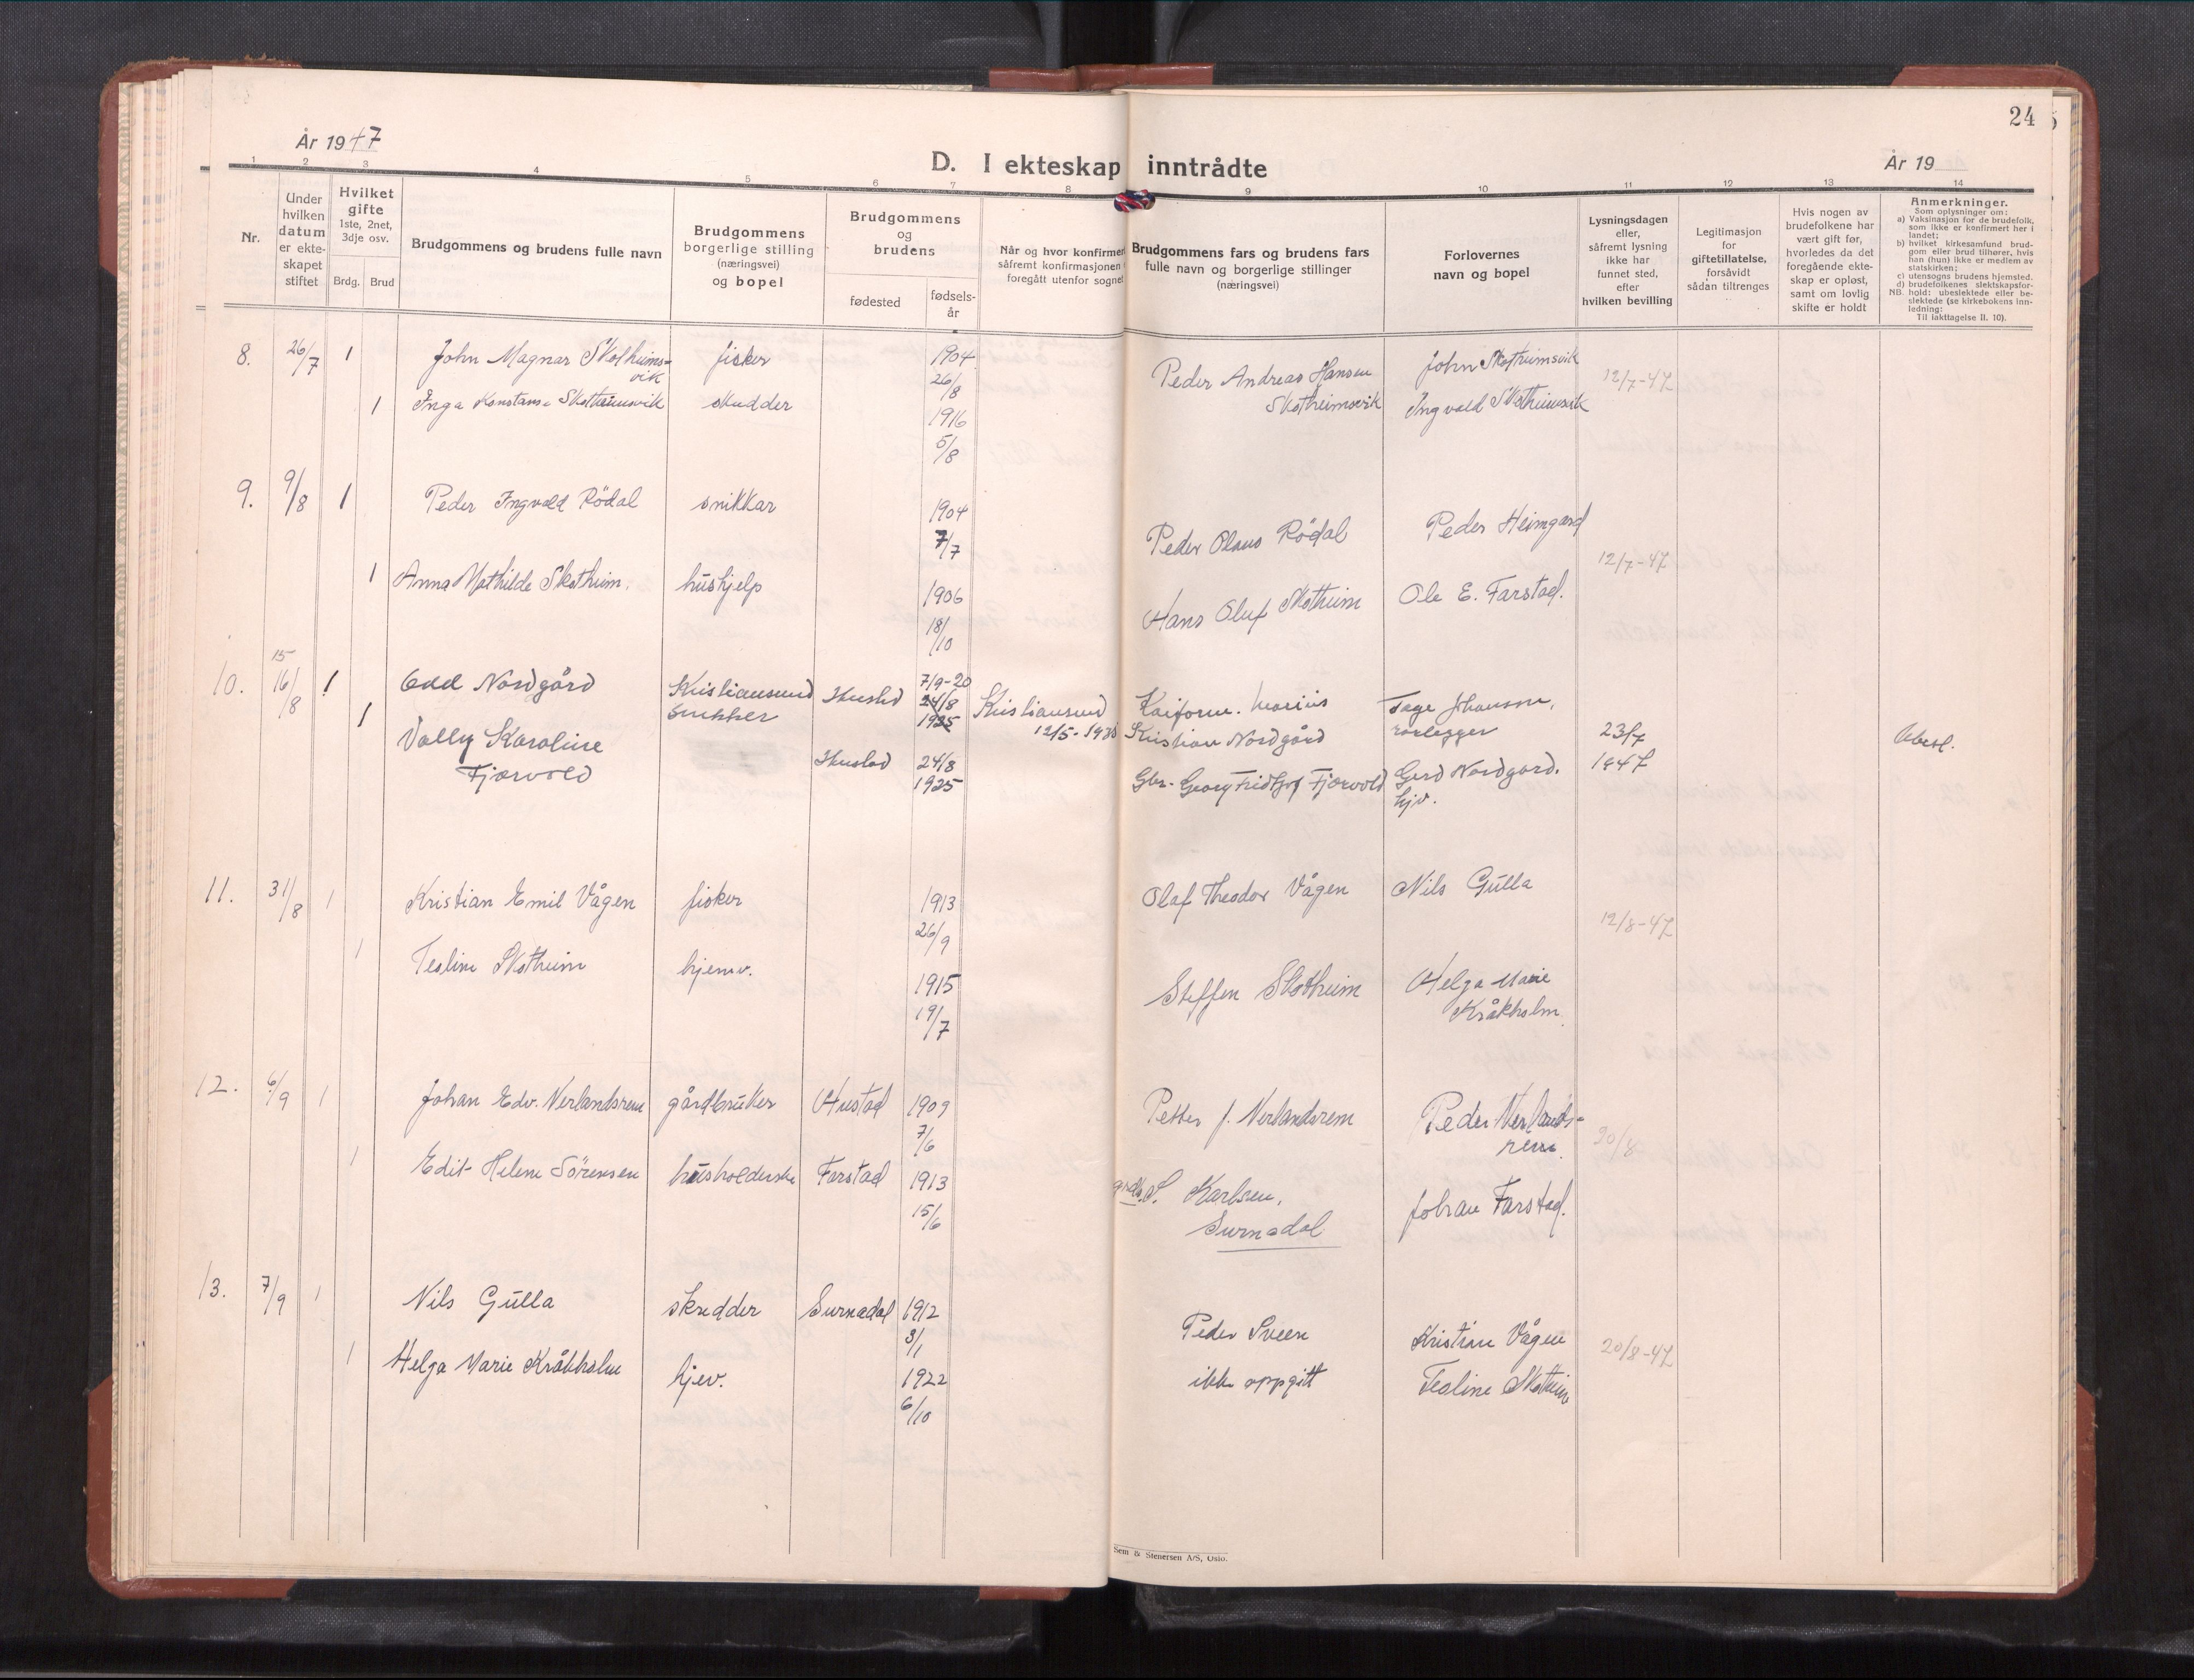 24
År 1947
D. I ekteskap inntrådte
År 19
1 2 3 4 5 6 7 8 9 10 11 12 13 14
Nr.
Under
hvilken
datum
er ekte-
skapet
stiftet
Hvilket
gifte
1ste, 2net,
3dje osv.
Brdg. Brud
Brudgommens og brudens fulle navn
Brudgommens
borgerlige stilling
(næringsvei)
og bopel
Brudgommens
og
brudens
fødested
fødsels-
år
Når og hvor konfirmer
såfremt konfirmasjonen
foregått utenfor sognet
Brudgommens fars og brudens fars
fulle navn og borgerlige stillinger
(næringsvei)
Forlovernes
navn og bopel
Lysningsdagen
eller,
såfremt lysning
ikke har
funnet sted,
efter
hvilken bevilling
Legitimasjon
for
giftetillatelse,
forsåvidt
sådan tiltrenges
Hvis nogen av
brudefolkene har
vært gift før,
hvorledes da det
foregående ekte-
skap er opløst,
samt om lovlig
skifte er holdt
Anmerkninger.
Som oplysninger om:
a) Vaksinasjon for de brudefolk,
som ikke er konfirmert her i
landet;
b) hvilket kirkesamfund brud-
gom eller brud tilhører, hvis
han (hun) ikke er medlem av
statskirken;
c) utensogns brudens hjemsted.
d) brudefolkenes slektskapsfor-
NB. hold: ubeslektede eller be-
slektede (se kirkebokens inn-
ledning:
Til iakttagelse II. 10).
8. 26/7 1 John Magnar Skotheims- fisker 1904 Peder Andreas Hansen John Skotheimsvik
vik 26/8 Skotheimsvik 12/7-47
1 Inga Konstanse Skotheimsvik skredder 1916 Ingvald Skotheimsvik
5/8
9. 9/8 1 Peder Ingvald Rödal snikkar 1904 Peder Olaus Rödal Peder Heimgard
7/7 12/7-47
1 Anna Mathilde Skotheim. hushjelp 1906 Hans Oluf Skotheim Ole E. Farstad.
18/10
15
10. 16/8 1 Odd Nordgård Kristiansund Hustad 7/9-20 Kristiansund Marius Tage Johansen,
snikker 24/8 12/5-193 Kristian Nordgård rørlegger 23/7
1 Vally Karoline 1925 1947 Ubesl.
Fjærvold Hustad 24/8 Gbr. Georg Fridtjof Fjærvold Gerd Nordgård.
1925 hjv.
11. 31/8 1 Kristian Emil Vågen fisker 1913 Olaf Theodor Vågen Nils Gulla
26/9 12/8-47
1 Tealine Skotheim hjemv. 1915 Steffen Skotheim Helga Marie
19/7 Kråkholm
12. 6/9 1 Johan Edv. Nerlandsrem gårdbruker Hustad 1909 Petter J. Nerlandsrem Peder Nerlands-
7/6 rem. 20/8
1 Edit Helene Sörensen husholderske Farstad 1913 grdb. S. Karlsen, Johan Farstad.
15/6 Surnadal
13. 7/9 1 Nils Gulla skredder Surnadal 1912 Peder Sveen Kristian Vågen
3/1 20/8-47
1 Helga Marie Kråkholm hjev. 1922 ikke oppgitt Tealine Skotheim
6/10
Sem & Stenersen A/S, Oslo.